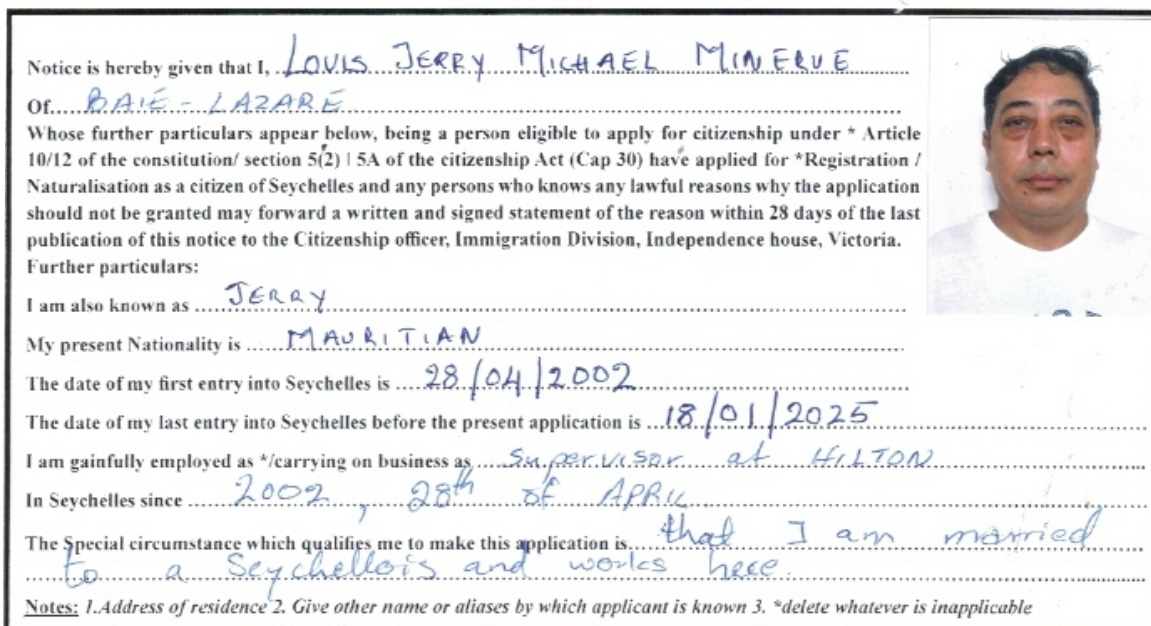 Notice is hereby given that I, LOUIS JERRY MICHAEL MINERVE
Of BAIE - LAZARE
Whose further particulars appear below, being a person eligible to apply for citizenship under * Article
10/12 of the constitution/ section 5(2) | 5A of the citizenship Act (Cap 30) have applied for *Registration /
Naturalisation as a citizen of Seychelles and any persons who knows any lawful reasons why the application
should not be granted may forward a written and signed statement of the reason within 28 days of the last
publication of this notice to the Citizenship officer, Immigration Division, Independence house, Victoria.
Further particulars:
I am also known as JERRY
My present Nationality is MAURITIAN
The date of my first entry into Seychelles is 28/04/2002
The date of my last entry into Seychelles before the present application is 18/01/2025
I am gainfully employed as */carrying on business as Supervisor at HILTON
In Seychelles since 2002, 28th of APRIL
The Special circumstance which qualifies me to make this application is that I am married
to a Seychellois and works here.
Notes: 1.Address of residence 2. Give other name or aliases by which applicant is known 3. *delete whatever is inapplicable